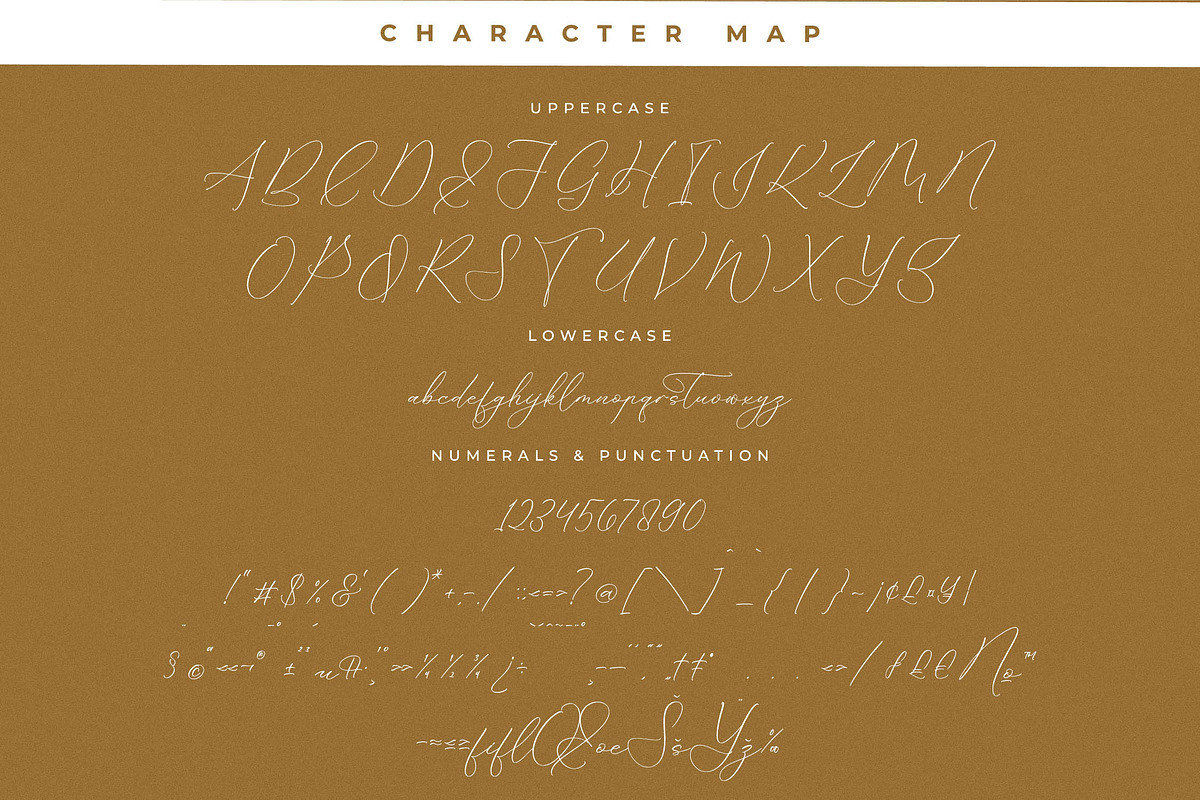 CHARACTER MAP
UPPERCASE
ABCDEFGHIJKLMN
OPQRSTUVWXYZ
LOWERCASE
abcdefghijklmnopqrstuvwxyz
NUMERALS & PUNCTUATION
1234567890
!"#$%&'()*+,-./:;<=>?@[\]^_`{|}~¡¢£¤¥¦
§¨©ª«¬®¯°±²³´µ¶·¸¹º»¼½¾¿÷
fiflŒœŠšŸž‰